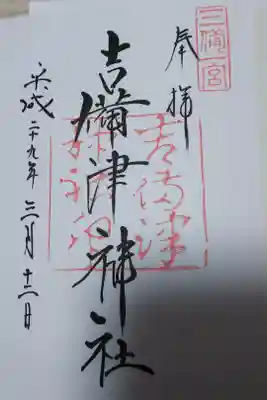 三備宮
奉拝
吉備津
吉備津神社
平成二十九年三月十二日